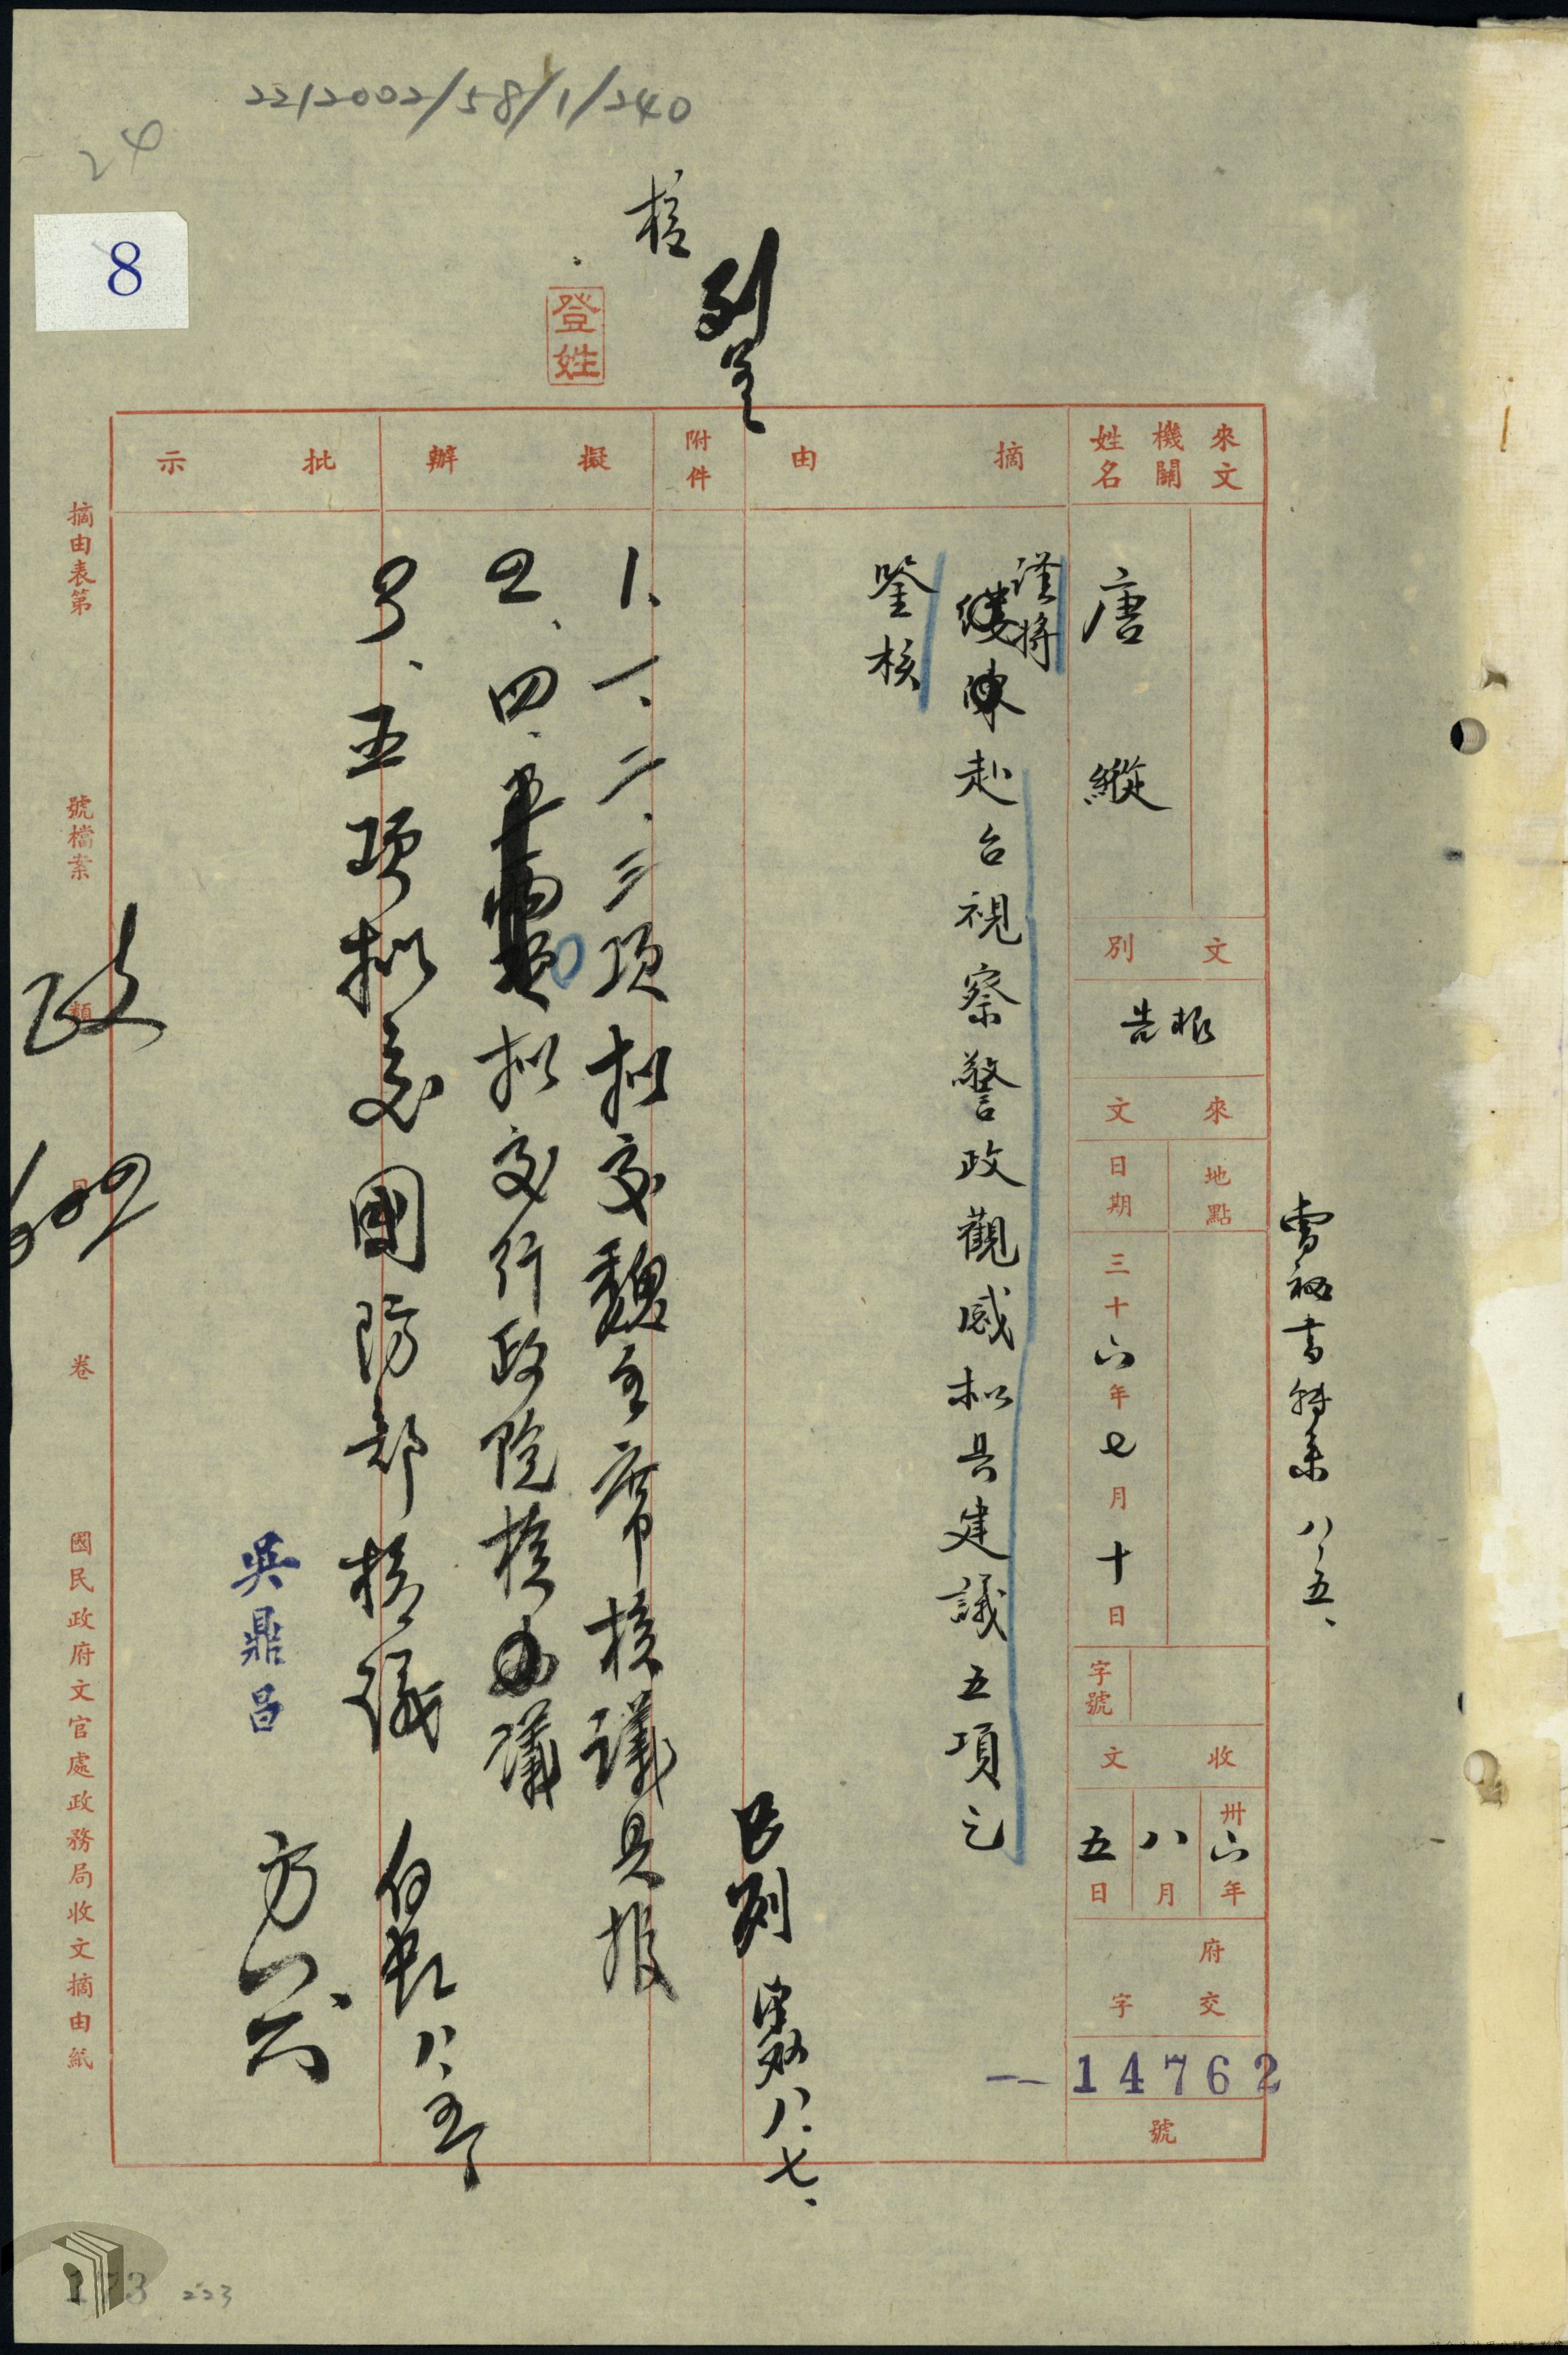 2212002/58/1/240
24
8
核
列呈
登姓
曹秘書轉來 八、五、
來文機關姓名
唐縱
文別
報告
來文
地點
日期
三十六年七月十日
字號
收文
卅六年八月五日
府交字
14762
號
摘由
謹將
縷陳赴台視察警政觀感擬具建議五項乞
鑒核
附件
已列
八、七、
擬辦
1、一、二、三項擬交魏主席核議具報
2、四、擬交行政院核議
3、五項擬交國防部核議
八、五
批示
吳鼎昌
摘由表第 號檔案 類 目 卷 國民政府文官處政務局收文摘由紙
政
223